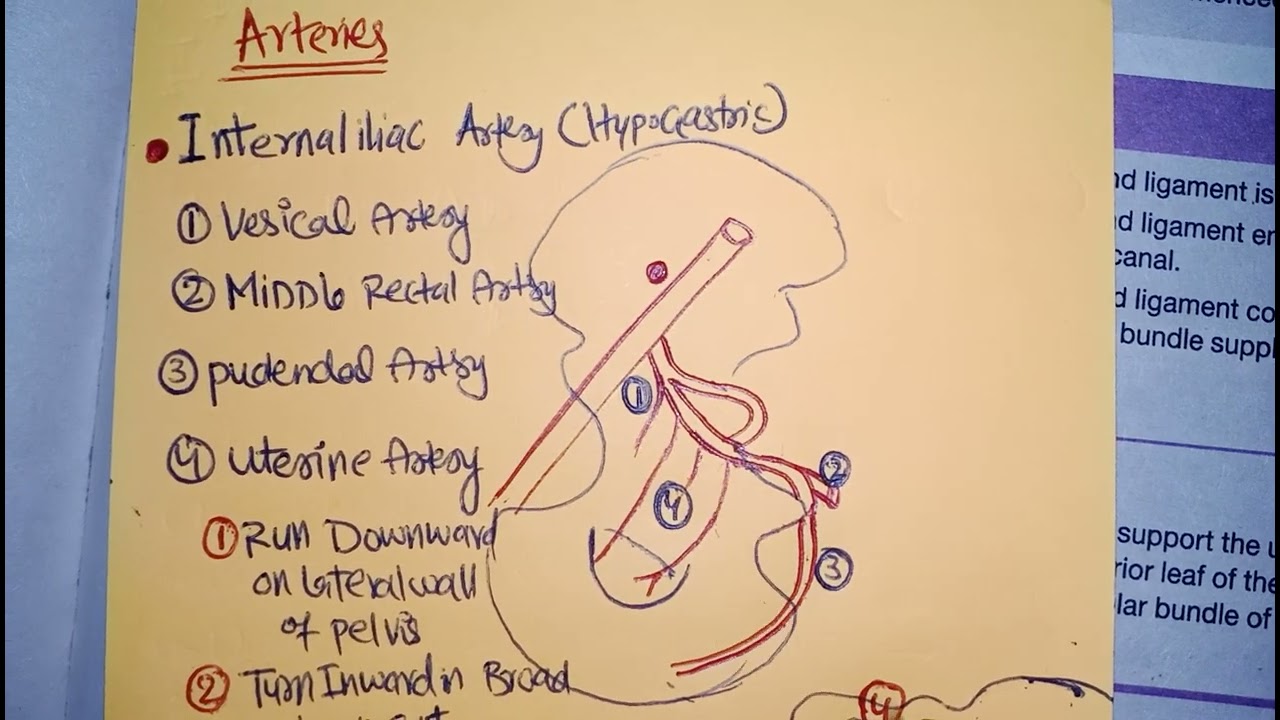 Arteries
Internal iliac Artery (Hypogastric)
① Vesical Artery
② MiDDle Rectal Artery
③ pudendal Artery
④ Uterine Artery
① Run Downward
on Lateral wall
of pelvis
② Turn Inward in Broad
①
②
④
③
4
nd ligament is
nd ligament er
canal.
d ligament co
bundle suppl
support the u
rior leaf of the
lar bundle of